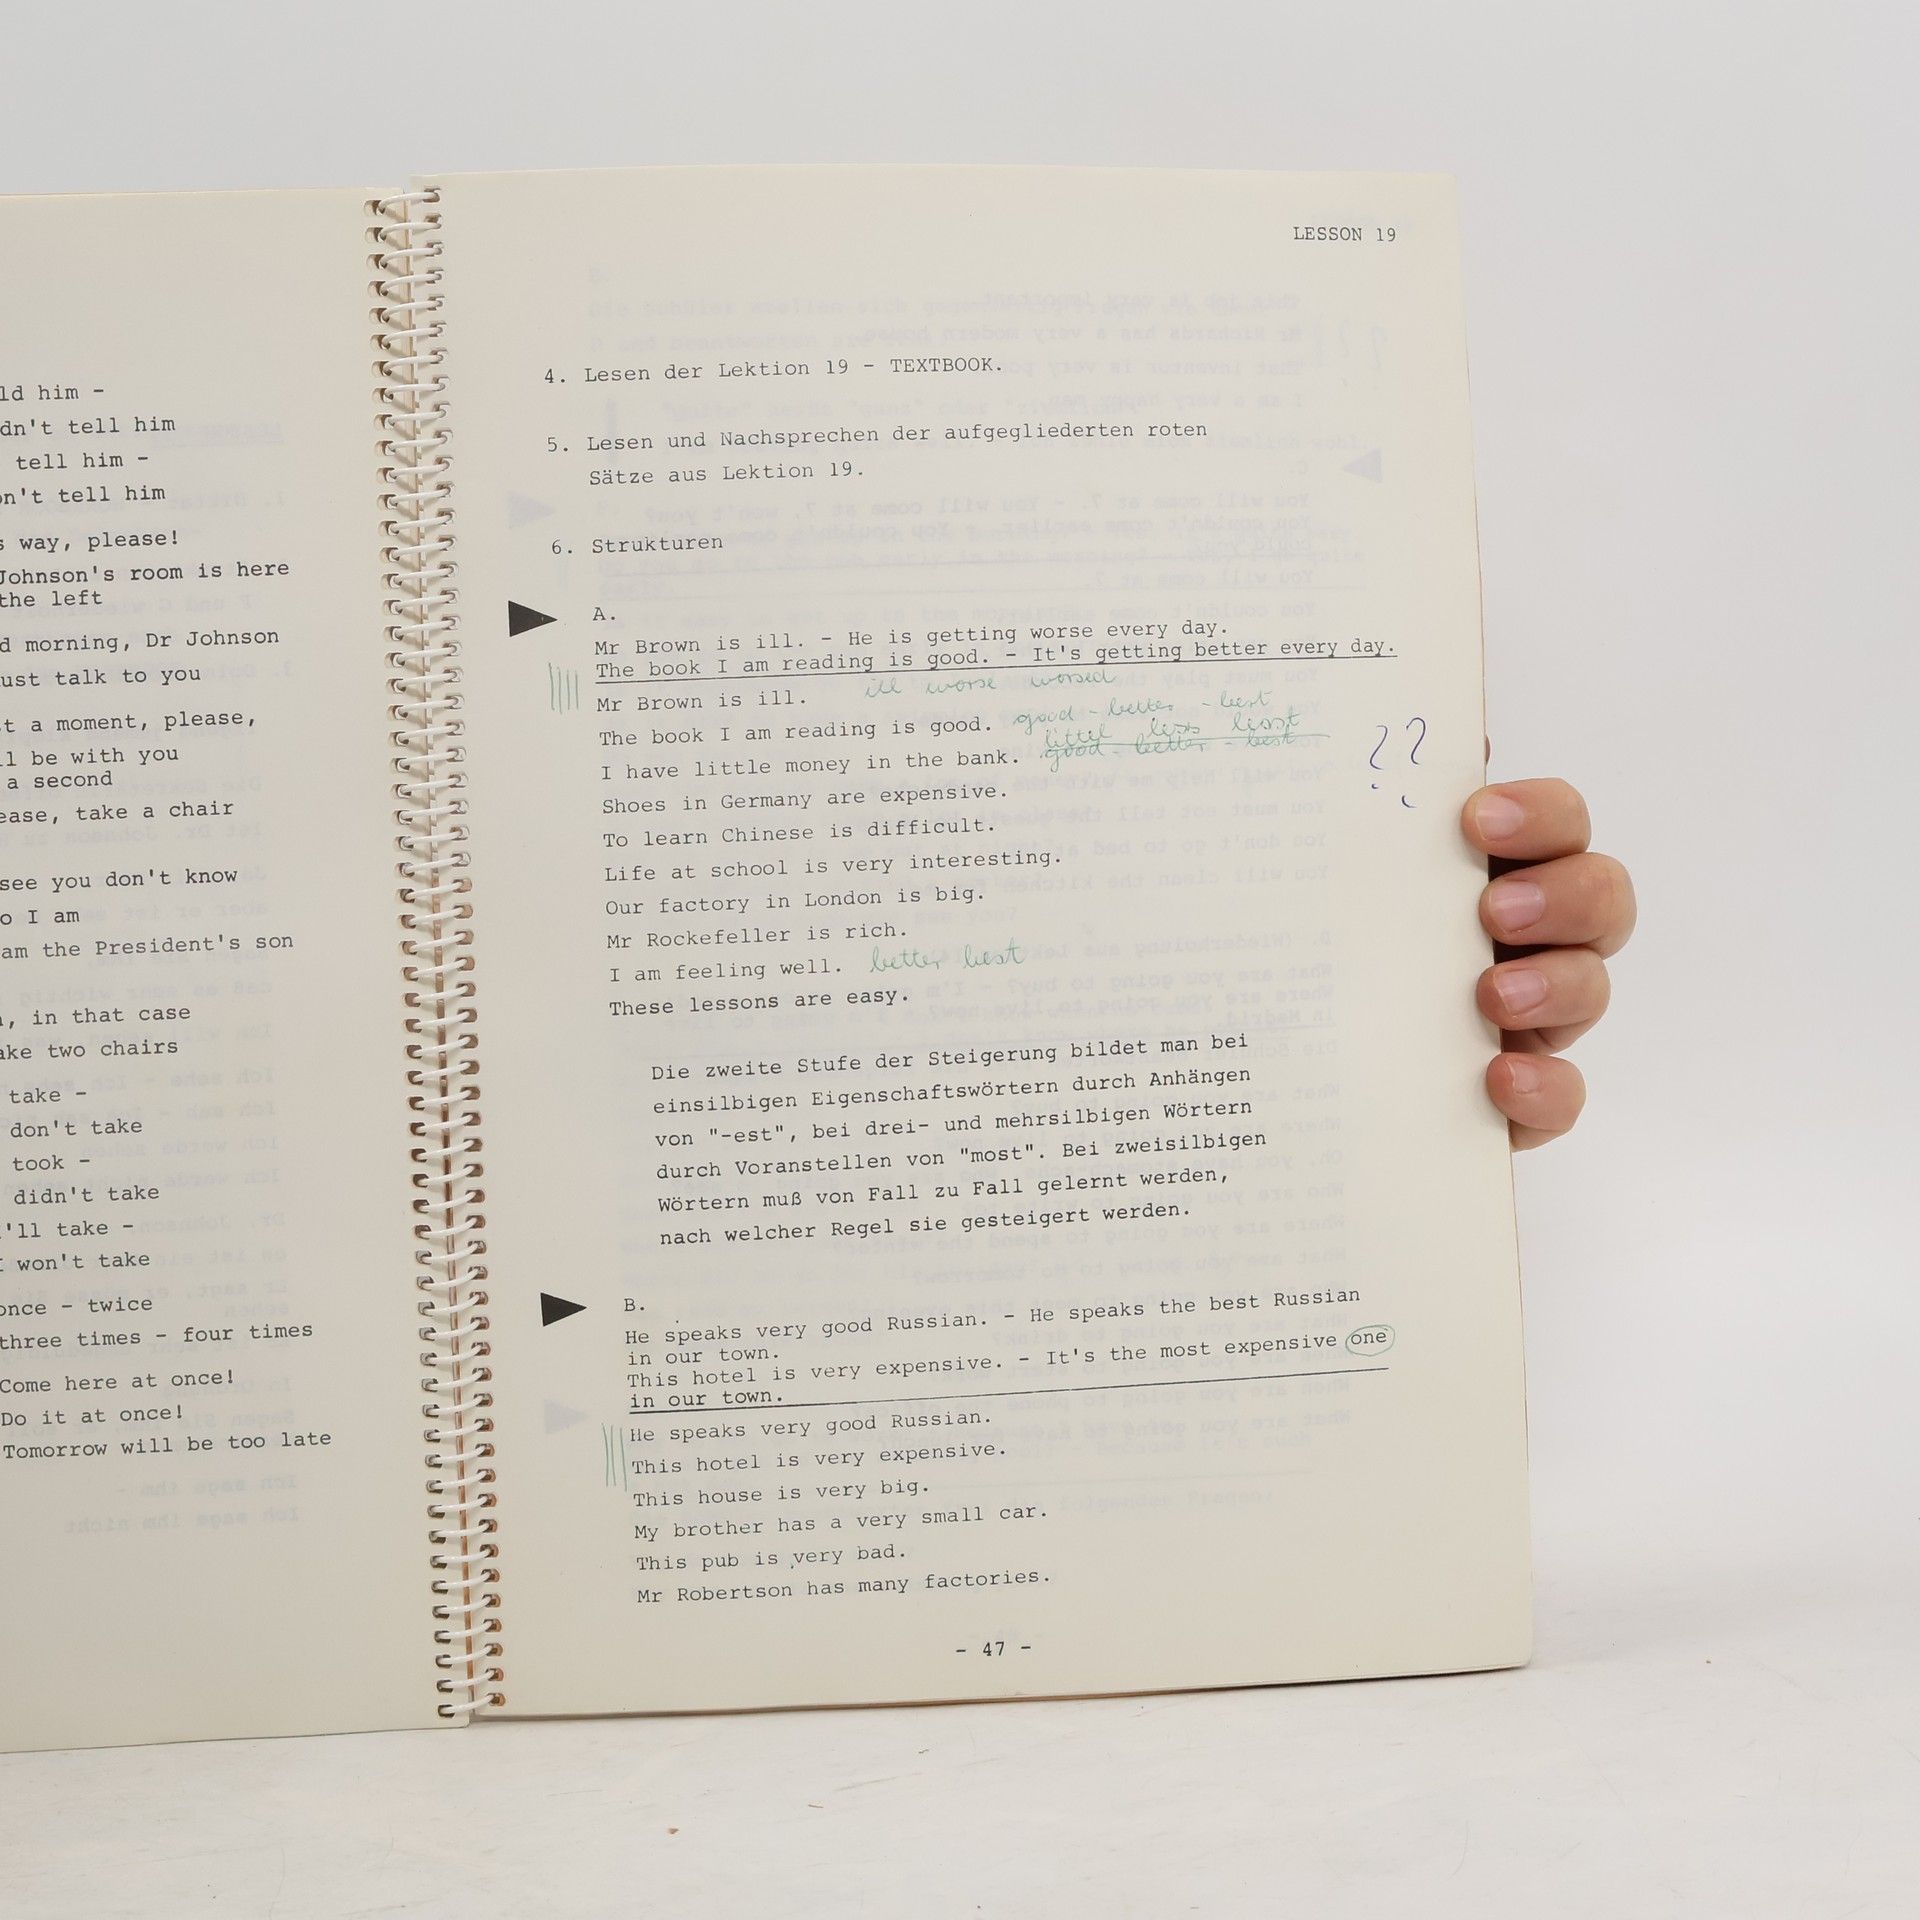 ld him -
dn't tell him
tell him -
on't tell him
s way, please!
Johnson's room is here
the left
d morning, Dr Johnson
ust talk to you
t a moment, please,
ll be with you
a second
ease, take a chair
see you don't know
o I am
am the President's son
, in that case
ake two chairs
take -
don't take
took -
didn't take
'll take -
I won't take
once - twice
three times - four times
Come here at once!
Do it at once!
Tomorrow will be too late
LESSON 19
4. Lesen der Lektion 19 - TEXTBOOK.
5. Lesen und Nachsprechen der aufgegliederten roten
Sätze aus Lektion 19.
6. Strukturen
A.
Mr Brown is ill. - He is getting worse every day.
The book I am reading is good. - It's getting better every day.
Mr Brown is ill. ill worse worsed
The book I am reading is good. good - better - best
littel less lesst
I have little money in the bank. good - better - best
??
Shoes in Germany are expensive.
To learn Chinese is difficult.
Life at school is very interesting.
Our factory in London is big.
Mr Rockefeller is rich.
I am feeling well. better best
These lessons are easy.
Die zweite Stufe der Steigerung bildet man bei
einsilbigen Eigenschaftswörtern durch Anhängen
von "-est", bei drei- und mehrsilbigen Wörtern
durch Voranstellen von "most". Bei zweisilbigen
Wörtern muß von Fall zu Fall gelernt werden,
nach welcher Regel sie gesteigert werden.
B.
He speaks very good Russian. - He speaks the best Russian
in our town.
This hotel is very expensive. - It's the most expensive one
in our town.
He speaks very good Russian.
This hotel is very expensive.
This house is very big.
My brother has a very small car.
This pub is very bad.
Mr Robertson has many factories.
- 47 -